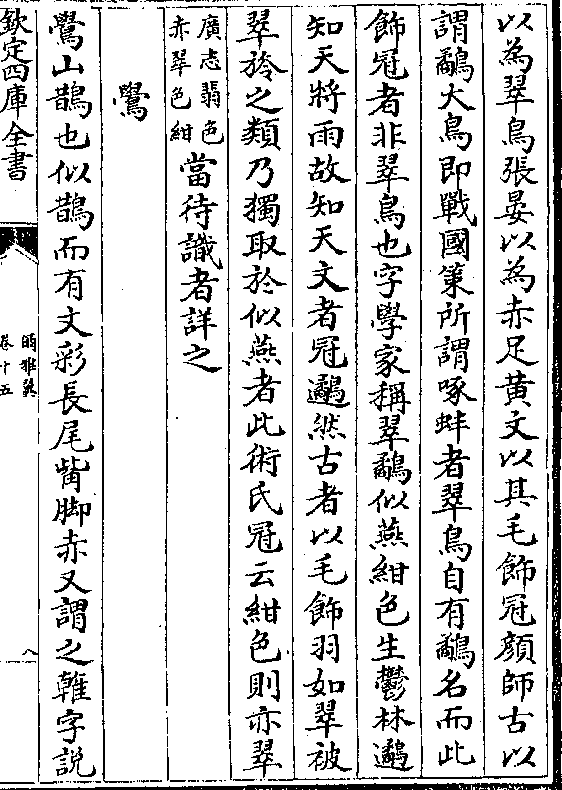 以為翠鳥張晏以為赤足黄文以其毛飾冠顔師古以
謂鷸大鳥即戰國策所謂啄蚌者翠鳥自有鷸名而此
飾冠者非翠鳥也字學家稱翠鷸似燕紺色生鬱林䴜
知天將雨故知天文者冠䴜然古者以毛飾羽如翠被
翠旍之類乃獨取於似燕者此術氏冠云紺色則亦翠
廣志翡色
赤翠色紺
當待識者詳之
鷽
鷽山鵲也似鵲而有文彩長尾觜脚赤又謂之雗字説
欽定四庫全書
埤雅
卷十五
八